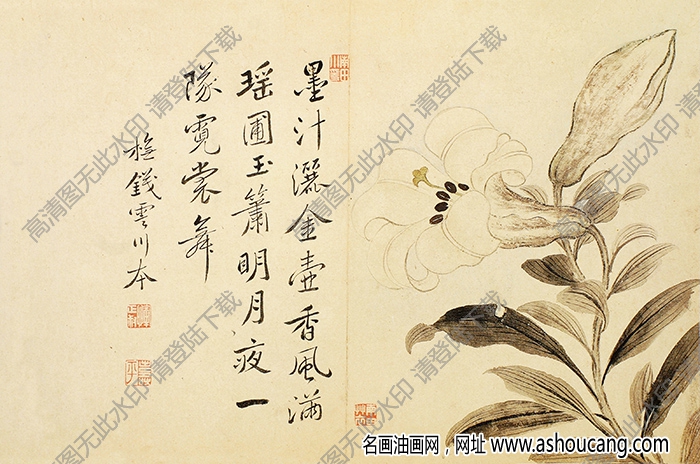 墨汁灑金壺香風滿
瑤圃玉簫明月夜一
隊霓裳舞
橅錢霅川本
高清图无此水印 请登陆下载
高清图无此水印 请登陆下载
高清图无此水印 请登陆下载
高清图无此水印 请登陆下载
名画油画网，网址 www.ashoucang.com